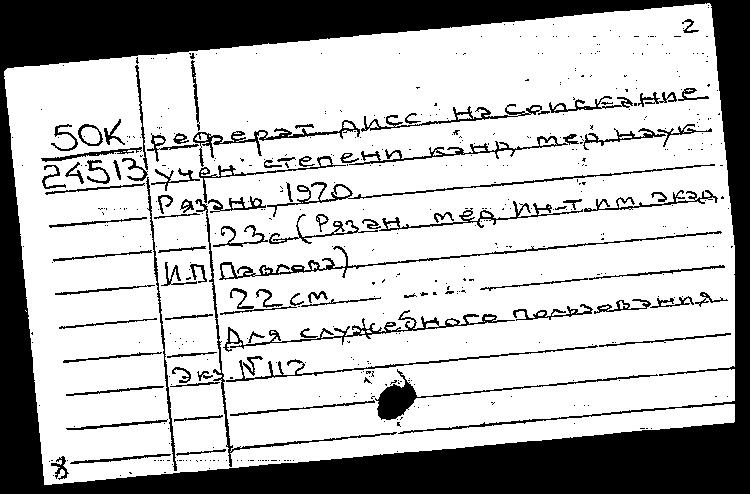 2
50К
24513
реферат дисс. на соискание
учен. степени канд. мед. наук
Рязань, 1970.
23с. (Рязан. мед. ин-т. им. акад.
И.П. Павлова).
22 см.
Для служебного пользования.
Экз. №112.
8